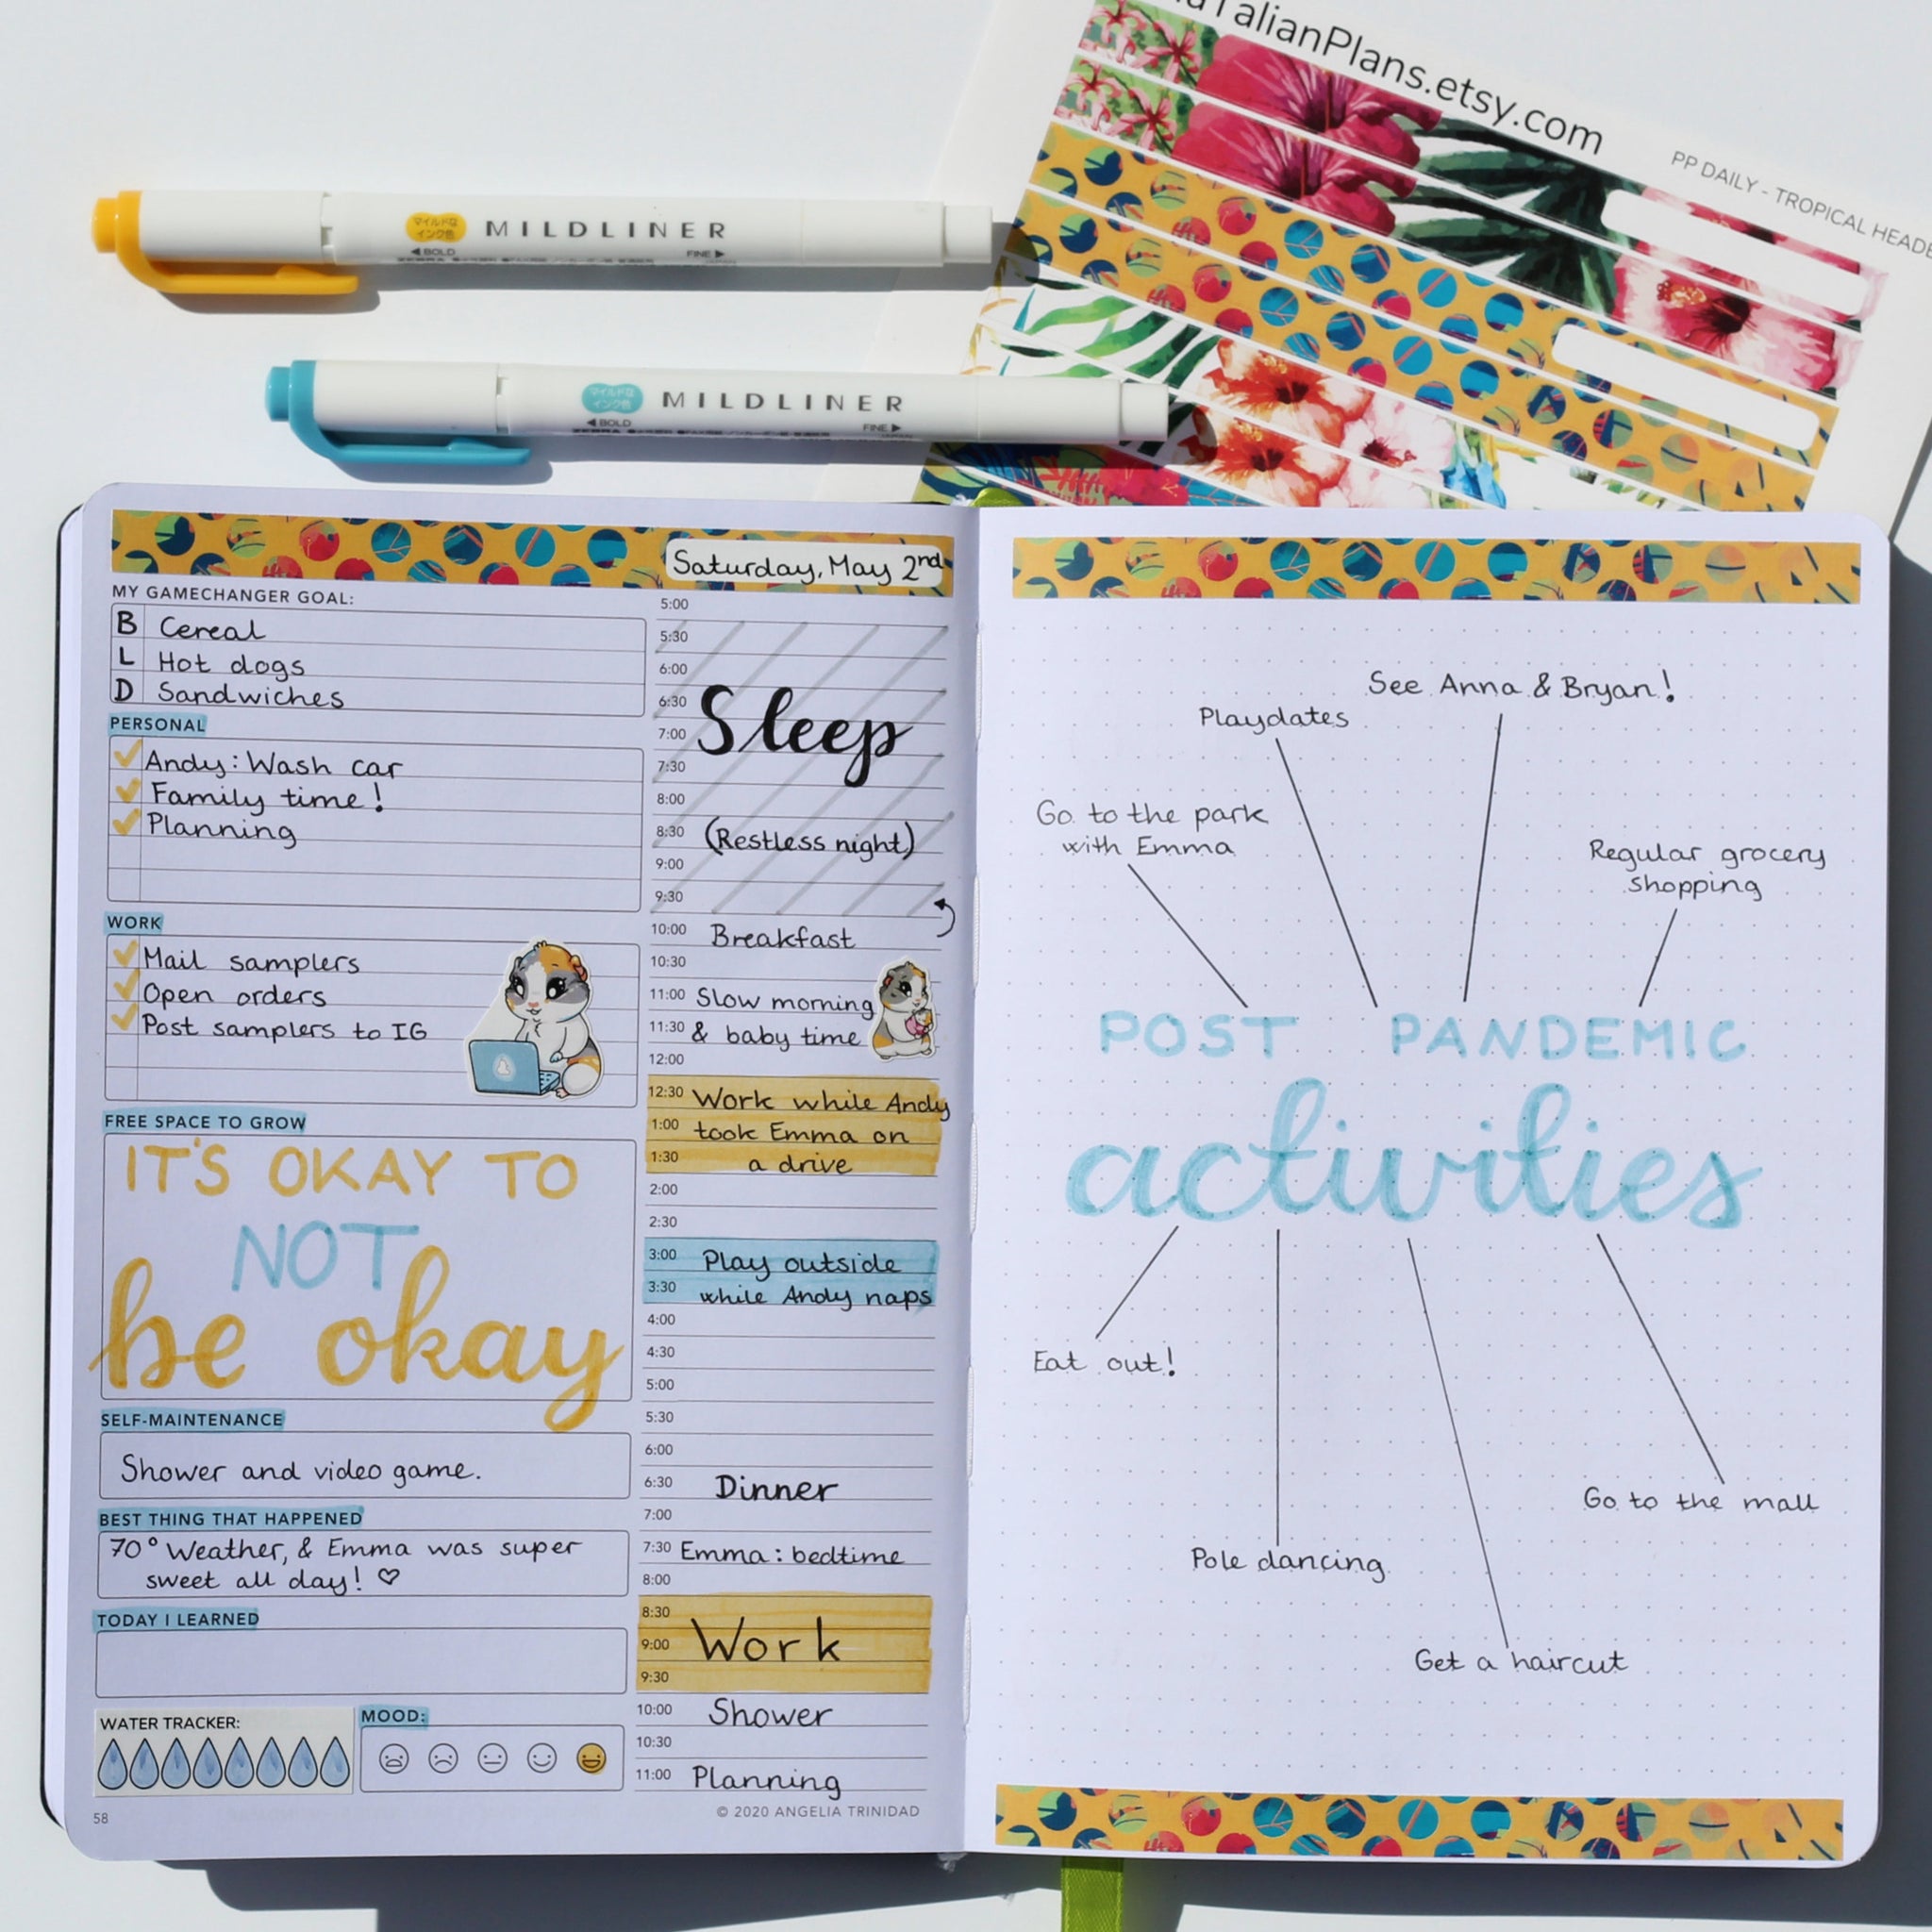 TalianPlans.etsy.com
PP DAILY - TROPICAL HEADE
マイルドな
インク色
MILDLINER
◀BOLD
FINE▶
マイルドな
インク色
MILDLINER
◀BOLD
FINE▶
Saturday, May 2nd
MY GAMECHANGER GOAL:
B Cereal
L Hot dogs
D Sandwiches
PERSONAL
Andy: Wash car
Family time!
Planning
WORK
Mail samplers
Open orders
Post samplers to IG
FREE SPACE TO GROW
IT'S OKAY TO
NOT
be okay
SELF-MAINTENANCE
Shower and video game.
BEST THING THAT HAPPENED
70° Weather, & Emma was super
sweet all day! ♡
TODAY I LEARNED
WATER TRACKER:
MOOD:
58
5:00
5:30
6:00
6:30
Sleep
7:00
7:30
8:00
8:30 (Restless night)
9:00
9:30
10:00 Breakfast
10:30
11:00 Slow morning
11:30 & baby time
12:00
12:30 Work while Andy
1:00 took Emma on
1:30 a drive
2:00
2:30
3:00 Play outside
3:30 while Andy naps
4:00
4:30
5:00
5:30
6:00
6:30 Dinner
7:00
7:30 Emma: bedtime
8:00
8:30
9:00 Work
9:30
10:00 Shower
10:30
11:00 Planning
© 2020 ANGELIA TRINIDAD
See Anna & Bryan!
Playdates
Go to the park
with Emma
Regular grocery
shopping
POST PANDEMIC
activities
Eat out!
Go to the mall
Pole dancing
Get a haircut